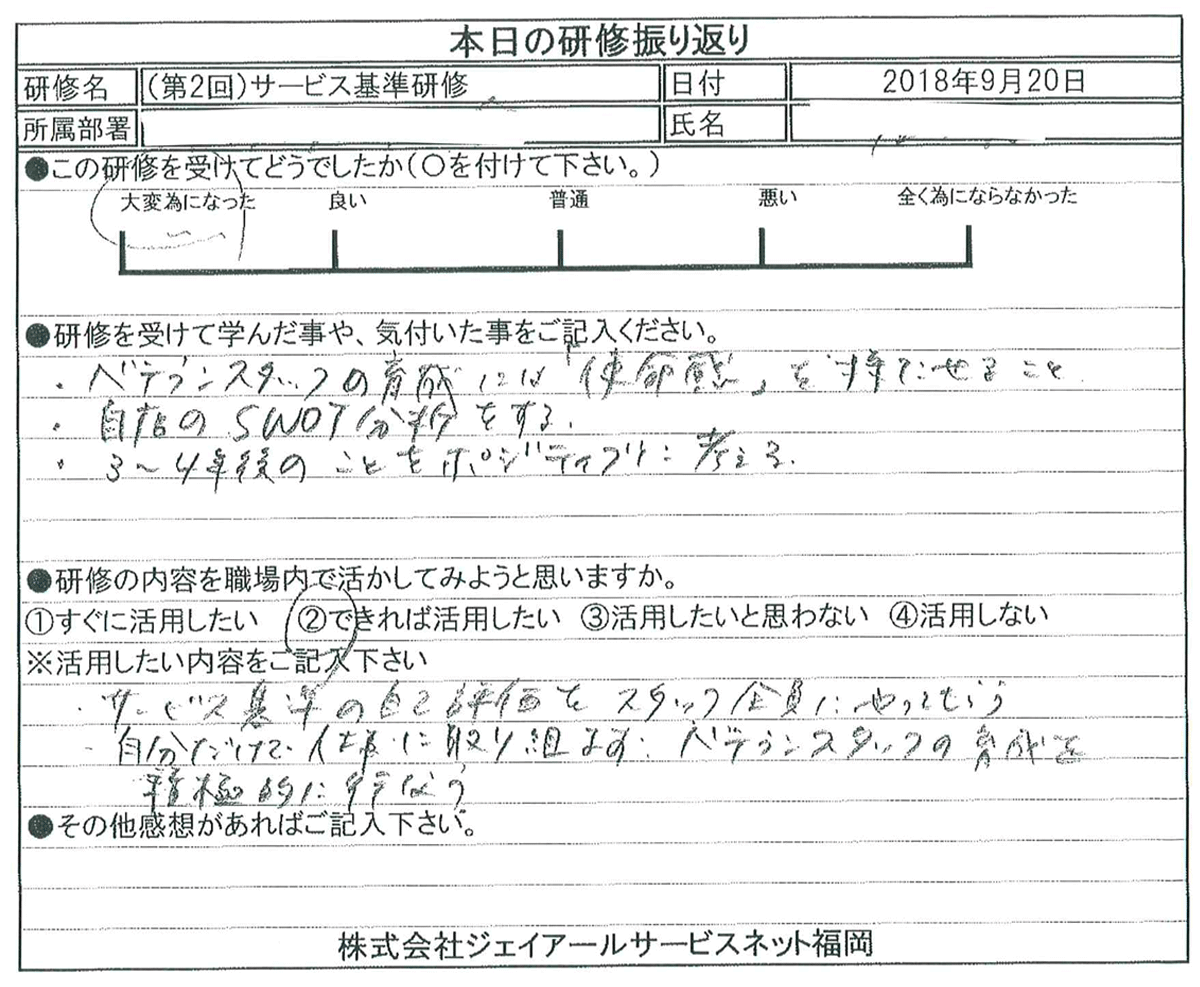 本日の研修振り返り
研修名 (第2回)サービス基準研修 日付 2018年9月20日
所属部署 氏名
●この研修を受けてどうでしたか(〇を付けて下さい。)
大変為になった 良い 普通 悪い 全く為にならなかった
●研修を受けて学んだ事や、気付いた事をご記入ください。
・ベテランスタッフの育成には「使命感」を持たせること
・自店のSWOT分析をする.
・3～4年後のことをポジティブに考える.
●研修の内容を職場内で活かしてみようと思いますか。
①すぐに活用したい ②できれば活用したい ③活用したいと思わない ④活用しない
※活用したい内容をご記入下さい
・サービス基準の自己評価をスタッフ全員にやってもらう
・自分だけで仕事に取り組まず、ベテランスタッフの育成を
積極的に行なう
●その他感想があればご記入下さい。
株式会社ジェイアールサービスネット福岡